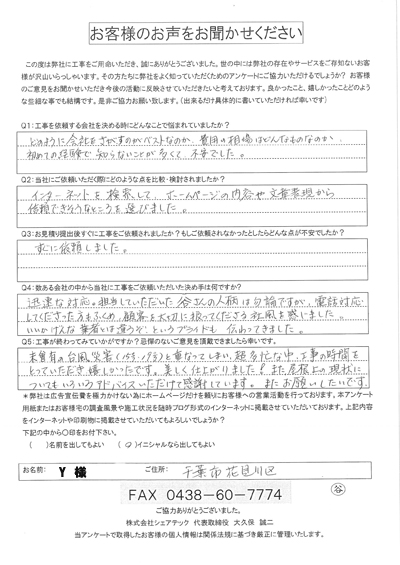 お客様のお声をお聞かせください
この度は弊社に工事をご用命いただき、誠にありがとうございました。世の中には弊社の存在やサービスをご存知ないお客
様が沢山いらっしゃいます。その方たちに弊社をよく知っていただくためのアンケートにご協力いただけるでしょうか? お客様
のご意見をお聞かせいただき今後の活動に反映させていただきたいと考えております。良かったこと、嬉しかったことどのよう
な些細な事でも結構です。是非ご協力お願い致します。(出来るだけ具体的に書いていただければ幸いです)
Q1:工事を依頼する会社を決める時にどんなことで悩まれていましたか?
どのように会社をさがすのがベストなのか、費用の相場はどんなものなのか、
初めての経験で知らないことが多くて不安でした。
Q2:当社にご依頼いただく際にどのような点を比較・検討されましたか?
インターネットを検索して、ホームページの内容や文章表現から
信頼できそうなところを選びました。
Q3:お見積り提出後すぐに工事をご依頼されましたか?もしご依頼されなかったとしたらどんな点が不安でしたか?
すぐに依頼しました。
Q4:数ある会社の中から当社に工事をご依頼いただいた決め手は何ですか?
迅速な対応。担当していただいた谷さんの人柄は勿論ですが、電話対応
してくださった方もふくめ、顧客を大切に扱ってくださる社風を感じました。
いいかげんな業者とは違うぞ、というプライドも伝わってきました。
Q5:工事が終わってみていかがですか?忌憚のないご意見を頂戴できましたら幸いです。
未曾有の台風災害(15号・19号)と重なってしまい、超多忙な中、工事の時間を
とっていただき嬉しかったです。美しく仕上がりました!また屋根上の現状に
ついてもいろいろアドバイスいただけて感謝しています。またお願いしたいです。
*弊社は広告宣伝費を極力かけない為にホームページだけを頼りにお客様への営業活動を行っております。本アンケート
用紙またはお客様宅の調査風景や施工状況を随時ブログ形式のインターネットに掲載させていただいております。上記内容
をインターネットや印刷物に掲載させていただいてもよろしいでしょうか?
下記の中から〇印をお付下さい。
( )名前を出してもよい (○)イニシャルなら出してもよい
お名前: Y 様 ご住所: 千葉市花見川区
FAX 0438-60-7774 谷
ご協力ありがとうございました。
株式会社シェアテック 代表取締役 大久保 誠二
当アンケートで取得したお客様の個人情報は関係法規に基づき厳正に管理いたします。